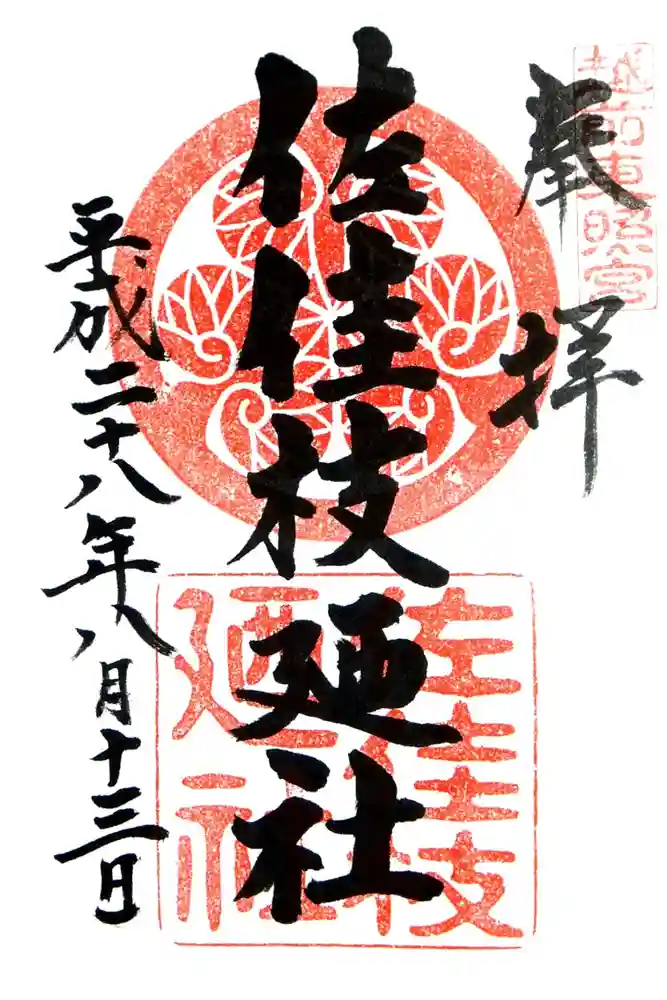 越前東照宮
奉拝
佐佳枝廼社
佐佳枝廼社
平成二十八年八月十三日